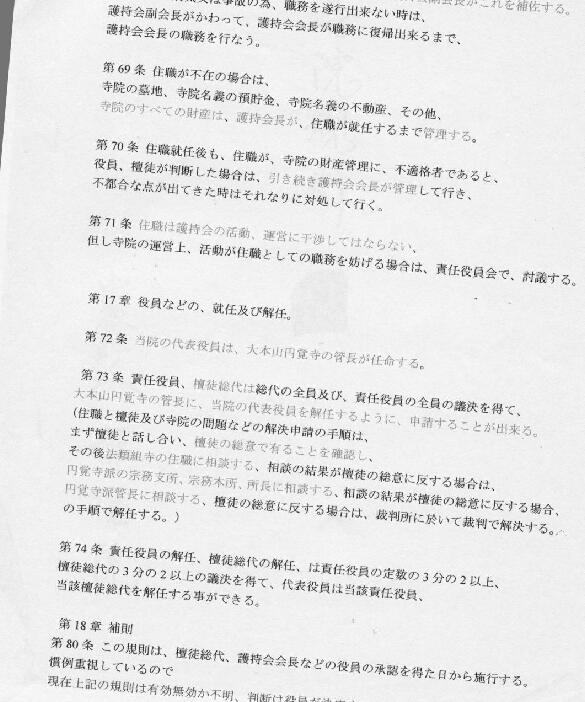 護持会副会長がこれを補佐する。
職務を遂行出来ない時は、
護持会副会長がかわって、護持会会長が職務に復帰出来るまで、
護持会会長の職務を行なう。
第69条 住職が不在の場合は、
寺院の墓地、寺院名義の預貯金、寺院名義の不動産、その他、
寺院のすべての財産は、護持会会長が、住職が就任するまで管理する。
第70条 住職就任後も、住職が、寺院の財産管理に、不適格者であると、
役員、檀徒が判断した場合は、引き続き護持会会長が管理して行き、
不都合な点が出てきた時はそれなりに対処して行く。
第71条 住職は護持会の活動、運営に干渉してはならない、
但し寺院の運営上、活動が住職としての職務を妨げる場合は、責任役員会で、討議する。
第17章 役員などの、就任及び解任。
第72条 当院の代表役員は、大本山円覚寺の管長が任命する。
第73条 責任役員、檀徒総代は総代の全員及び、責任役員の全員の議決を得て、
大本山円覚寺の管長に、当院の代表役員を解任するように、申請することが出来る。
(住職と檀徒及び寺院の問題などの解決申請の手順は、
まず檀徒と話し合い、檀徒の総意で有ることを確認し、
その後法類組寺の住職に相談する、相談の結果が檀徒の総意に反する場合は、
円覚寺派の宗務支所、宗務本所、所長に相談する、相談の結果が檀徒の総意に反する場合、
円覚寺派管長に相談する、檀徒の総意に反する場合は、裁判所に於いて裁判で解決する。
の手順で解任する。)
第74条 責任役員の解任、檀徒総代の解任、は責任役員の定数の3分の2以上、
檀徒総代の3分の2以上の議決を得て、代表役員は当該責任役員、
当該檀徒総代を解任する事ができる。
第18章 補則
第80条 この規則は、檀徒総代、護持会会長などの役員の承認を得た日から施行する。
慣例重視しているので
現在上記の規則は有効無効か不明、判断は役員が